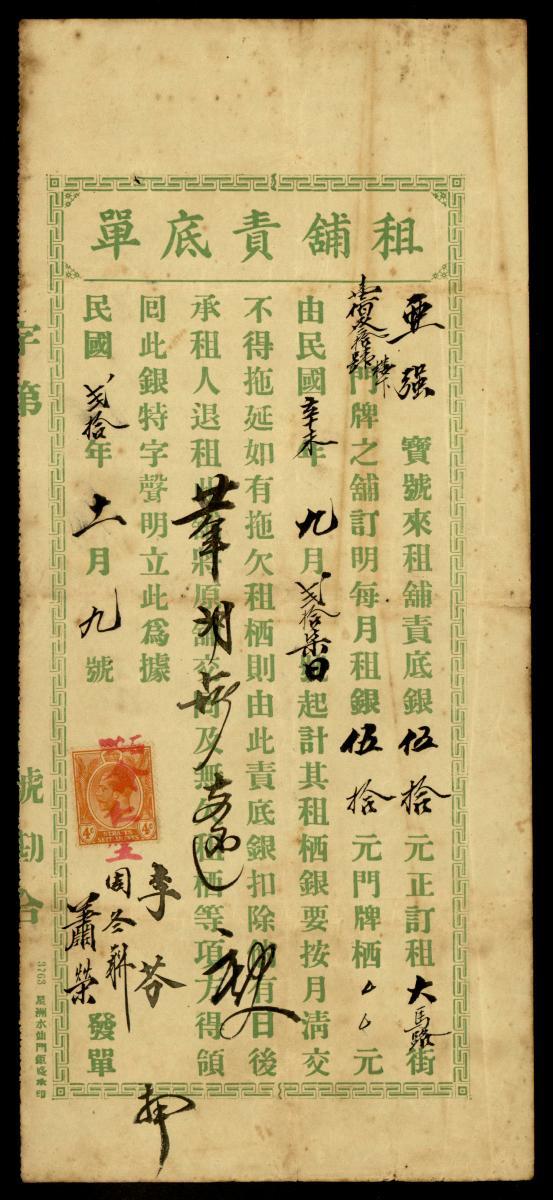 租舖責底單
亜强寶號來租舖責底銀伍拾元正訂租大馬路街
壹佰叁拾號樓下門牌之舖訂明每月租銀伍拾元門牌栖元
由民國辛未年九月弍拾柒日號起計其租栖銀要按月清交
不得拖延如有拖欠租栖則由此責底銀扣除倘有日後
承租人退租此將原舖交回及無欠租栖等項方得領
回此銀特字聲明立此爲據
民國弍拾年十一月九號
李芬
周冬
蕭榮
發單
字第 號勘合
STRAITS SETTLEMENTS
4c 4c
3763 星洲水仙門鉅成承印